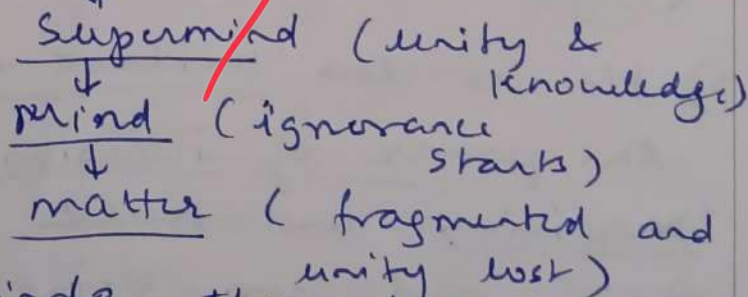 Supermind (unity &
knowledge)
↓
mind (ignorance
starts)
↓
matter ( fragmented and
unity lost)